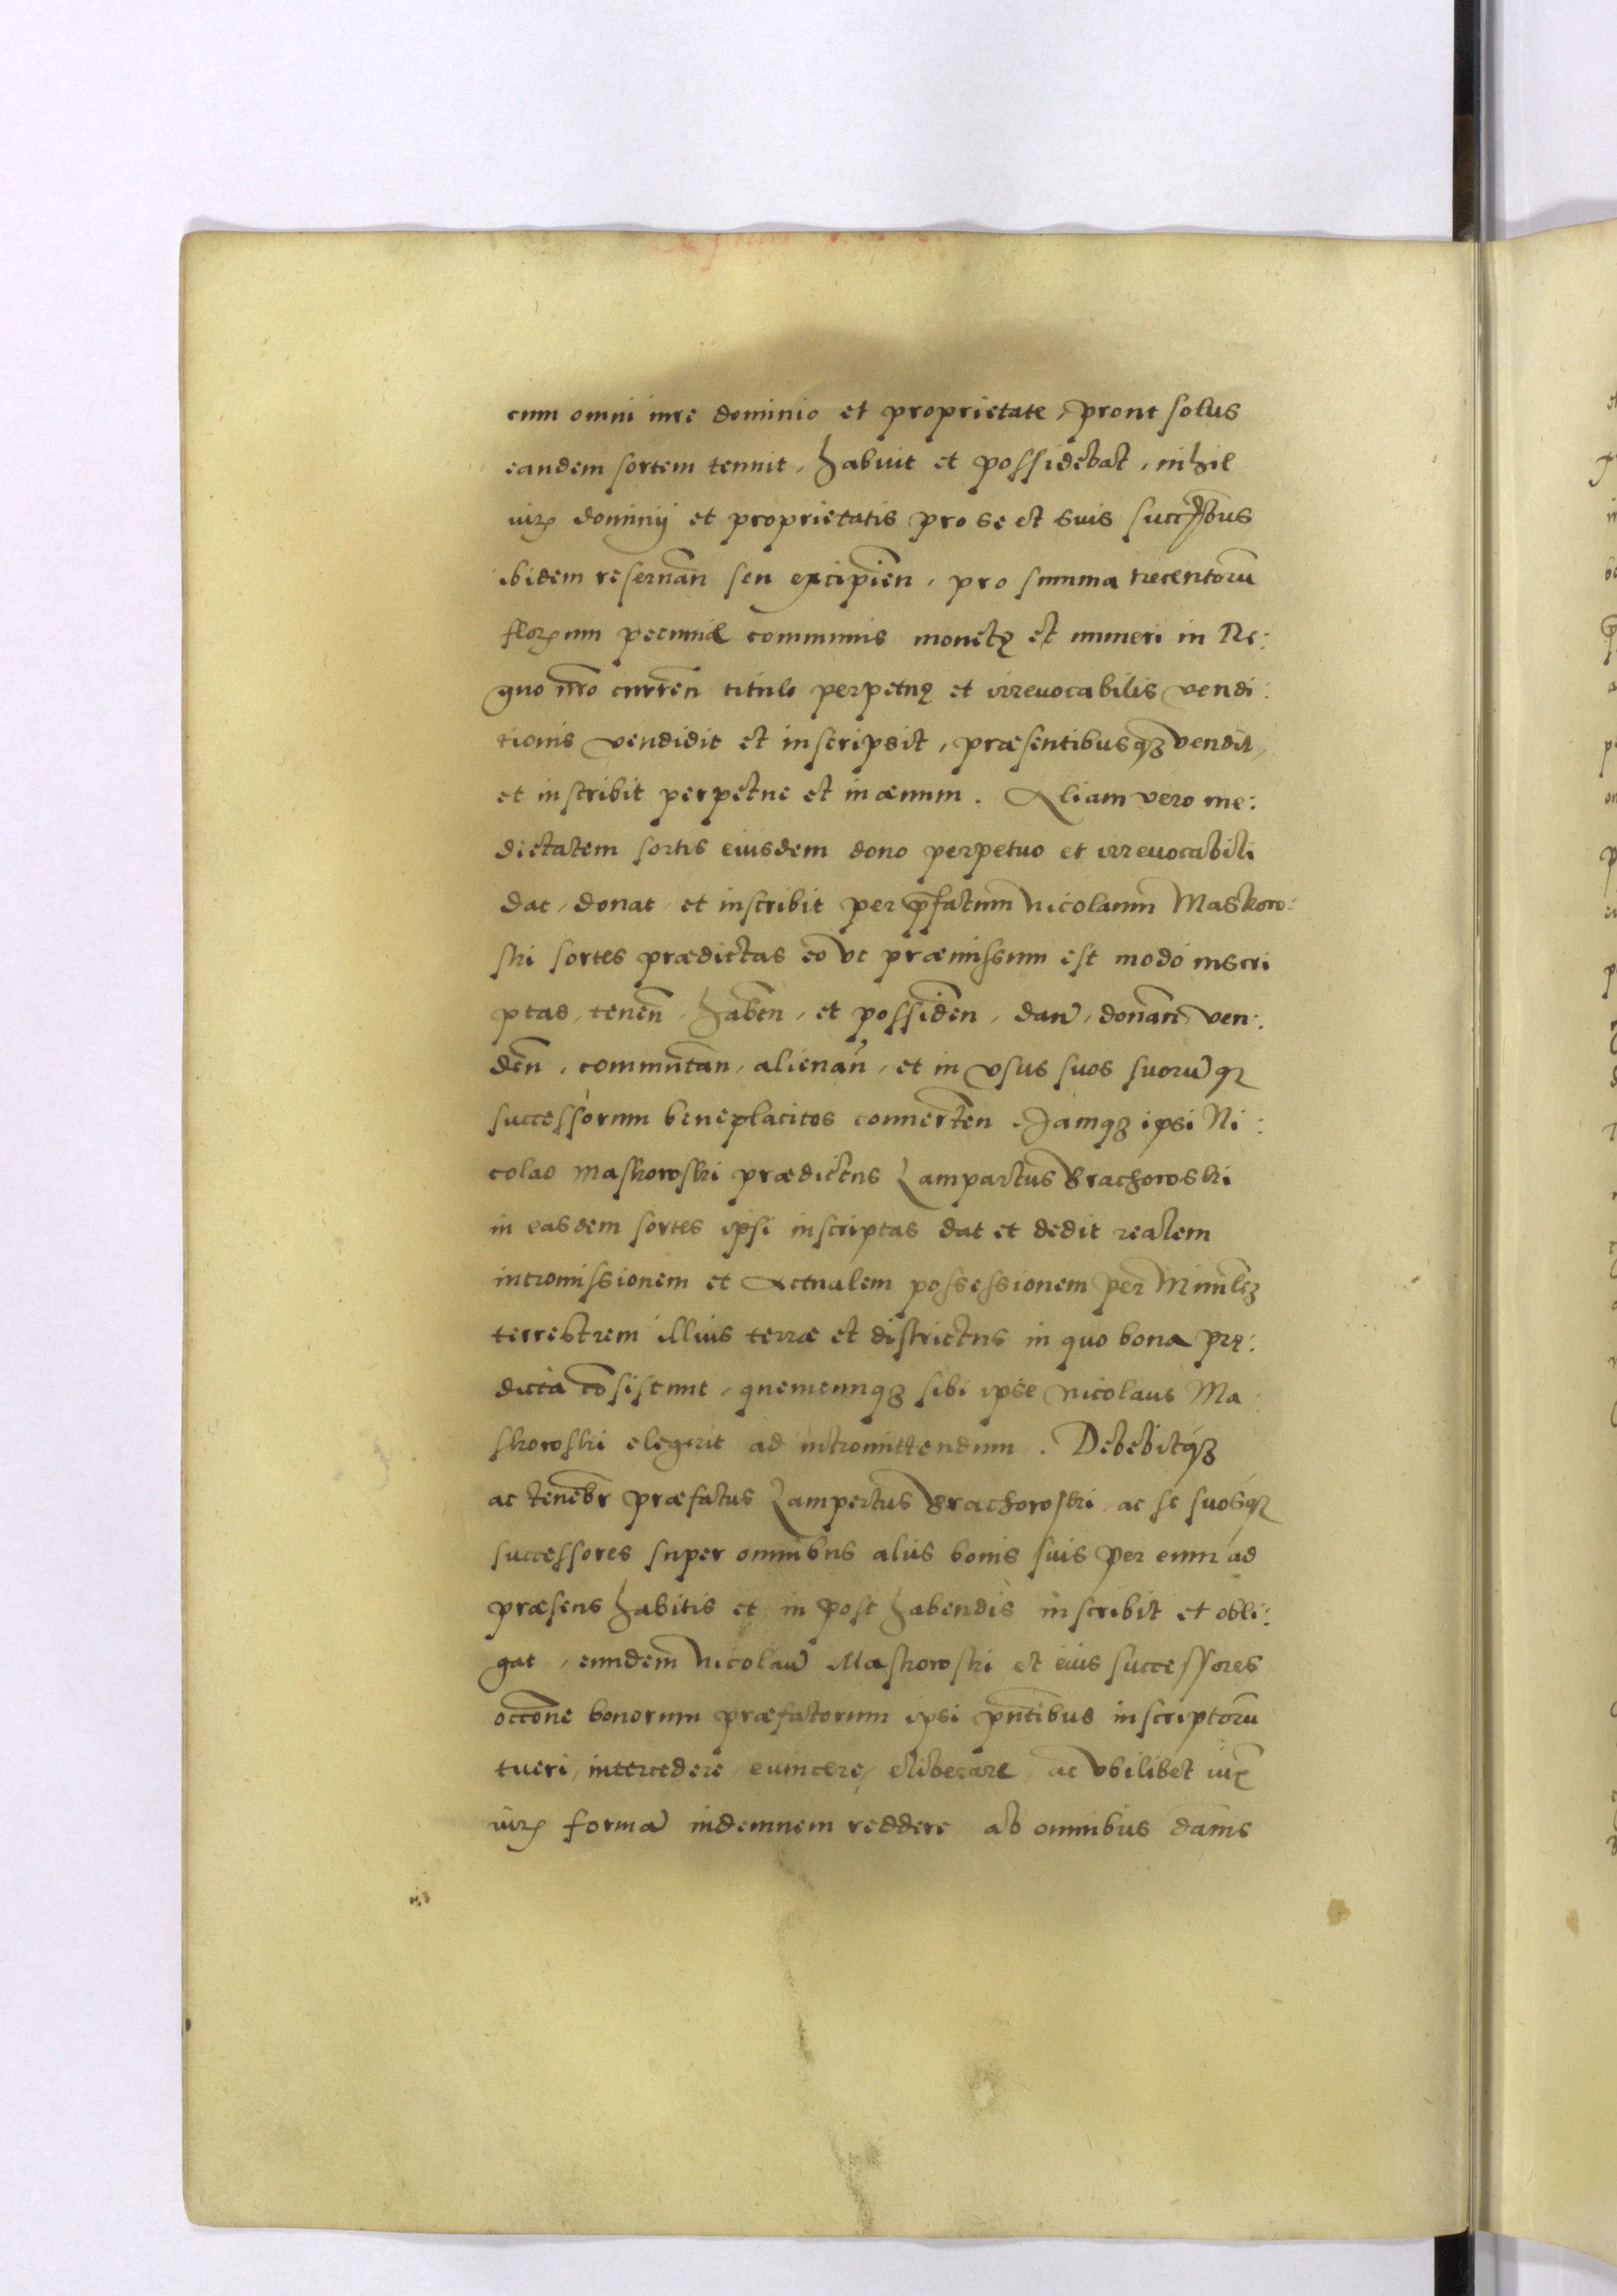 cum omni iure dominio et proprietate, prout solus
eandem sortem tenuit, habuit et possidebat, nihil
iurꝭ dominij et proprietatis pro se et suis succꝭbus
ibidem reseruañ seu excipieñ, pro summa trecentorū
florꝭnum pecuniæ communis monetę et numeri in Re:
gno nr̄o curreñ titulo perpetuę et irreuocabilis vendi:
tionis vendidit et inscripsit, præsentibusqꝫ vendit,
et inscribit perpetue et in æuum. Aliam vero me:
dietatem sortis eiusdem dono perpetuo et irreuocabili
dat, donat et inscribit per p̄fatum Nicolaum Maskoro:
ski sortes prædictas eo vt præmissum est modo inscri
ptas, teneñ, habeñ, et possideñ, dañ, donañ, ven:
deñ, commutañ, alienañ, et in vsus suos suorūqꝫ
successorum beneplacitos conuerteñ. Jamqꝫ ipsi Ni:
colao Maskoroski prædictus Lampartus Brachoroski
in easdem sortes ipsi inscriptas dat et dedit realem
intromissionem et Actualem possessionem per Minr̄lēꝫ
terrestrem illius terræ et districtus in quo bona prę:
dicta cōsistunt, quemcunqꝫ sibi ipse Nicolaus Ma:
skoroski elegerit ad intromittendum. Debebitqꝫ
ac tenēbr præfatus Lampertus Brachoroski, ac se suosqꝫ
successores super omnibus aliis bonis suis per eum ad
præsens habitis et in post habendis inscribit et obli:
gat, eundem Nicolaū Maskoroski et eius successores
occōne bonorum præfatorum ipsi pñtibus inscriptorū
tueri, intercedere, euincere, eliberare, ac vbilibet iūx
iurꝭ formā indemnem reddere ab omnibus dam̄s